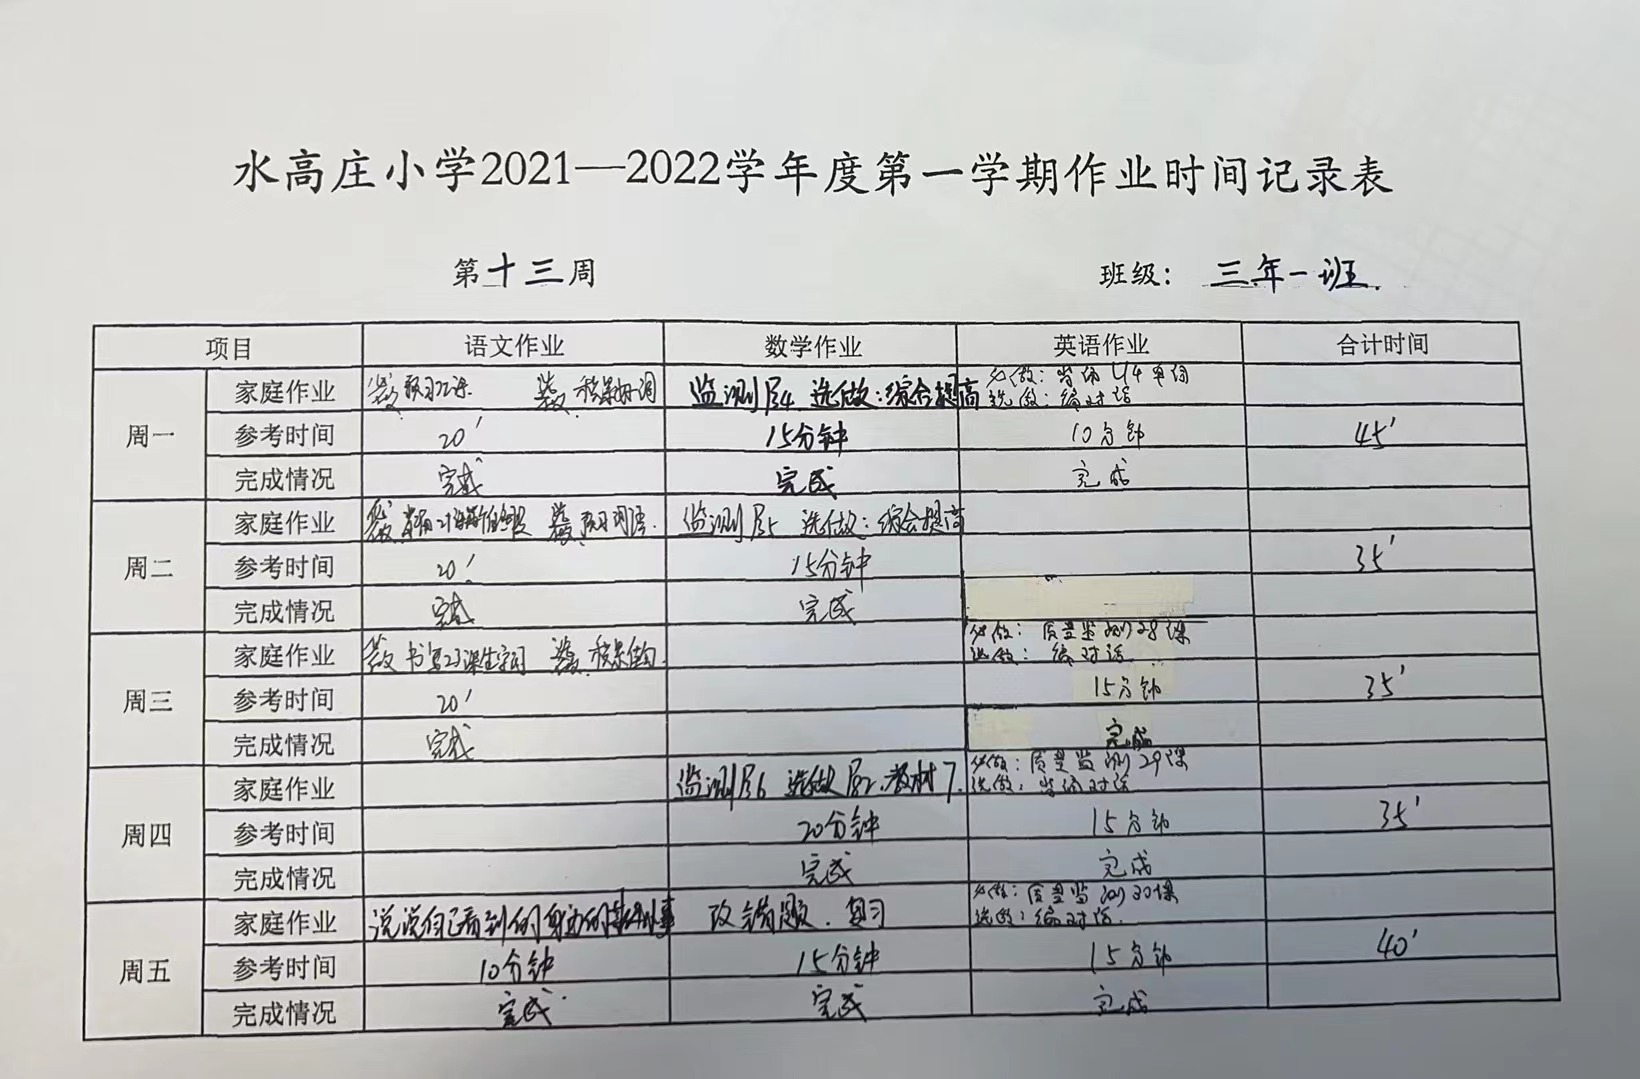 水高庄小学2021—2022学年度第一学期作业时间记录表
第十三周 班级：三年一班.
项目 语文作业 数学作业 英语作业 合计时间
周一 家庭作业 预习 课 积累好词 监测 P54 选做：综合提高 必做：背诵 U4 单词
选做：编对话
参考时间 20′ 15分钟 10分钟 45′
完成情况 完成 完成 完成
周二 家庭作业 预习词语. 监测 选做：综合提高
参考时间 20′ 15分钟 35′
完成情况 完成 完成
周三 家庭作业 书写23课生字词 积累 必做：质量监测28课
选做：编对话.
参考时间 20′ 15分钟 35′
完成情况 完成 完成
周四 家庭作业 监测 选做 教材 7. 必做：质量监测29课
选做：背诵对话
参考时间 20分钟 15分钟 35′
完成情况 完成 完成
周五 家庭作业 说说自己看到的身边的 改错题. 复习 必做：质量监测30课
选做：编对话.
参考时间 10分钟 15分钟 15分钟 40′
完成情况 完成. 完成 完成